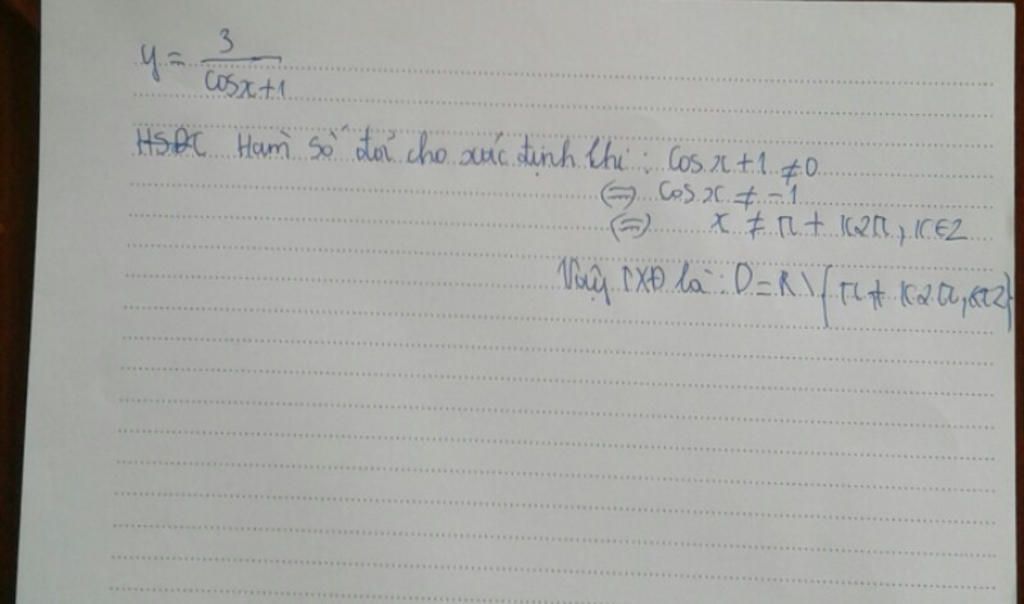 y = 3 / cosx+1
Hàm số đã cho xác định khi : Cos x + 1 ≠ 0
⇔ Cos x ≠ -1
⇔ x ≠ π + k2π, k∈Z
Vậy TXĐ là : D = R \ { π + k2π, k∈Z}